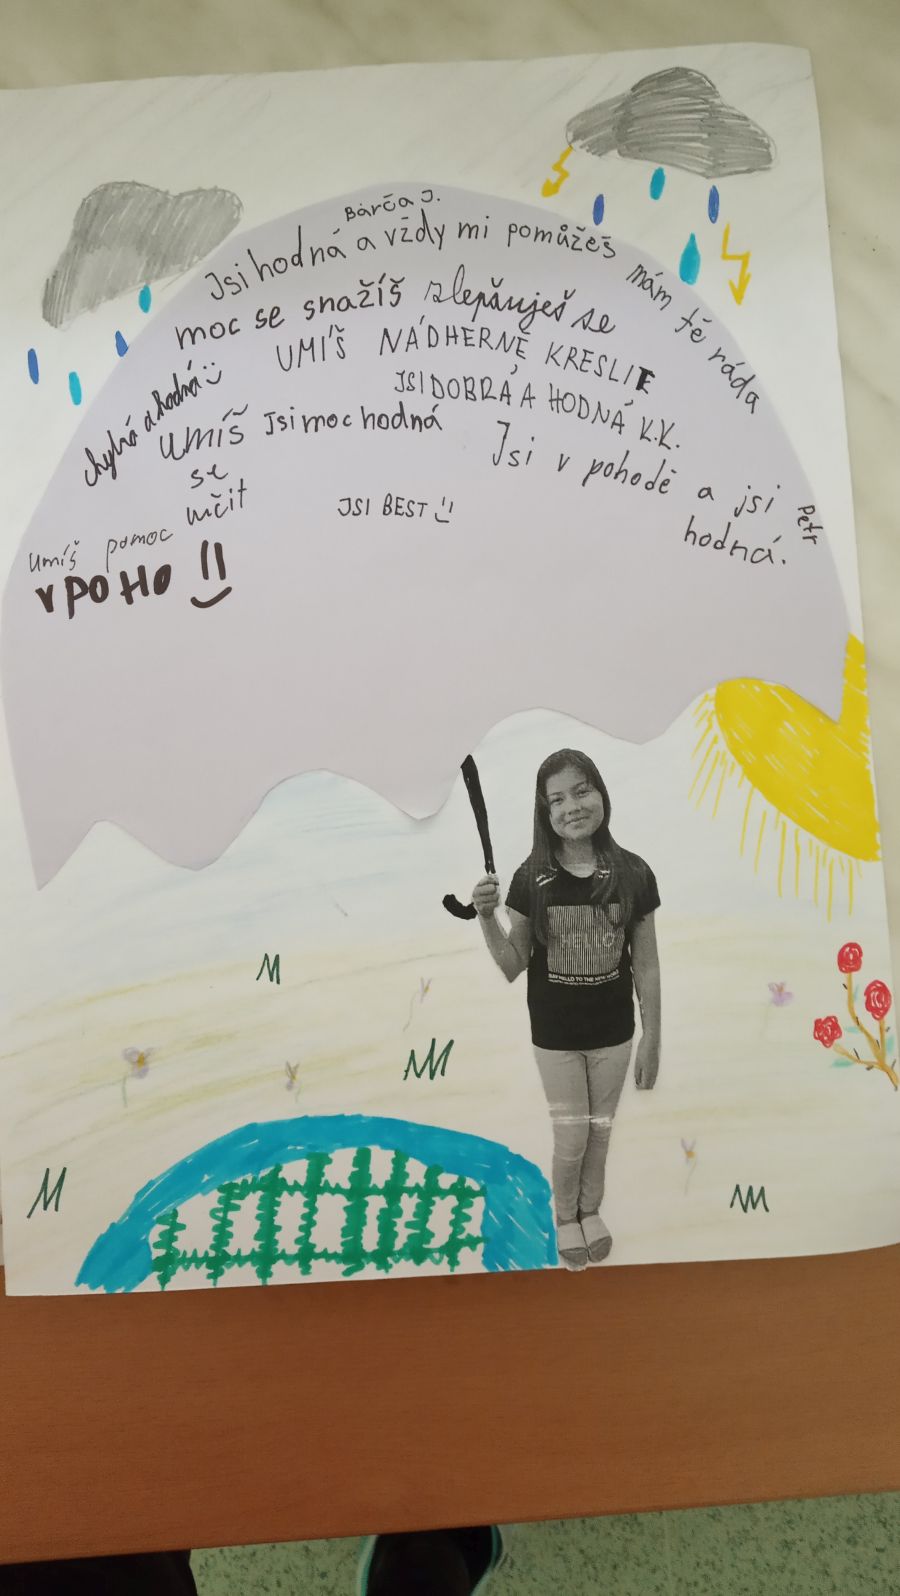 Bárča J.
Jsi hodná a vždy mi pomůžeš
mám tě ráda
moc se snažíš zlepšuješ se
UMÍŠ NÁDHERNĚ KRESLIT
JSI DOBRÁ A HODNÁ K.K.
chytrá a hodná :)
umíš
se
učit
Jsi moc hodná
Jsi v pohodě a jsi
hodná.
Petr
JSI BEST
umíš pomoc
v POHO
HELLO
SAY HELLO TO THE NEW